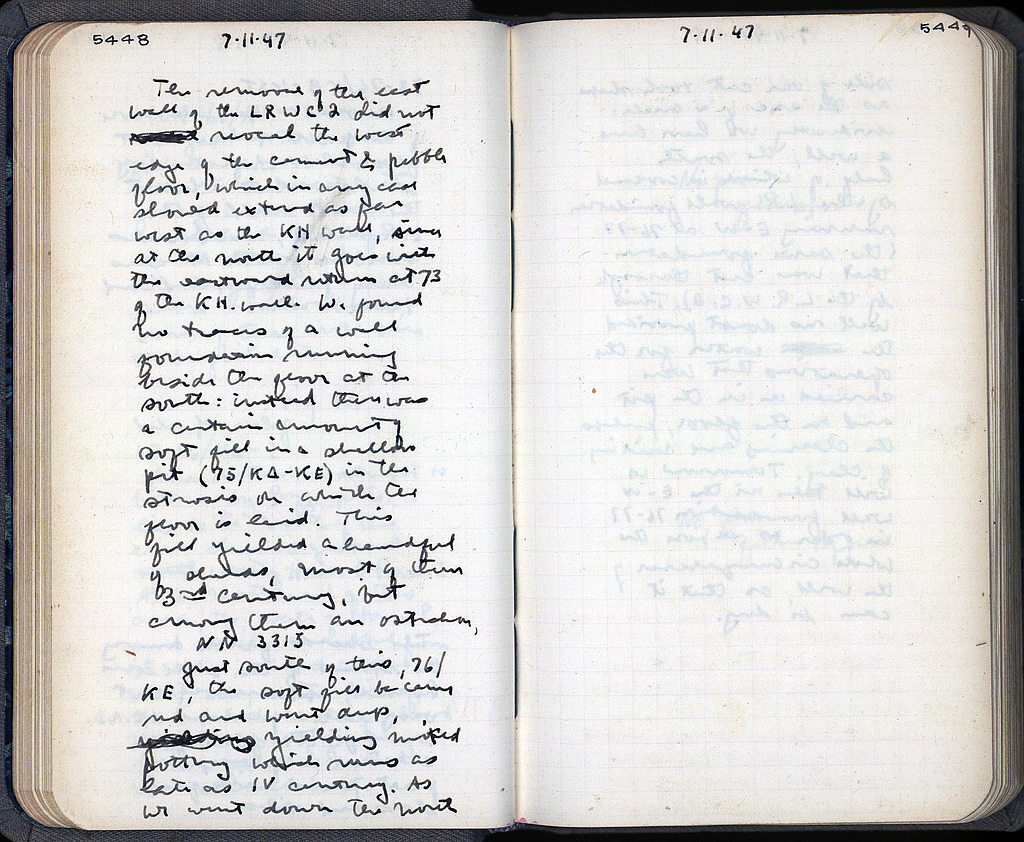 5448
7·11·47
The removal of the east
wall of the LRWC 2 did not
reveal the west
edge of the cement & pebble
floor, which in any case
should extend as far
west as the KH wall, since
at the north it goes with
the eastward return at 73
of the KH. wall. We found
no traces of a wall
foundation running
beside the floor at the
south: instead there was
a certain amount of
soft fill in a shallow
pit (75/KΔ-KE) in the
strosis on which the
floor is laid. This
fill yielded a handful
of sherds, most of them
3rd century, but
among them an ostrakon,
NN 3313
Just south of this, 76/
KE, the soft fill became
red and went deep,
yielding yielding mixed
pottery which runs as
late as IV century. As
we went down the north
7·11·47
5449